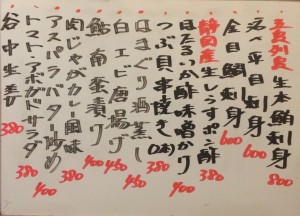 五島列島 生本鮪刺身 800
天然平目刺身 600
金目鯛刺身 600
静岡産 生しらすポン酢 380
ほたるいか酢味噌かけ 400
つぶ貝串焼き(2本)
はまぐり酒蒸し
白エビ唐揚げ 450
鮎南蛮漬け 400
肉じゃがカレー風味 380
アスパラバター炒め
トマト・アボガドサラダ 400
谷中生姜 380